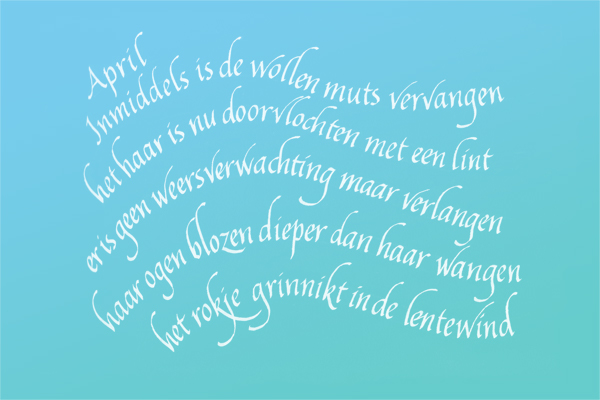 April
Inmiddels is de wollen muts vervangen
het haar is nu doorvlochten met een lint
er is geen weersverwachting maar verlangen
haar ogen blozen dieper dan haar wangen
het rokje grinnikt in de lentewind